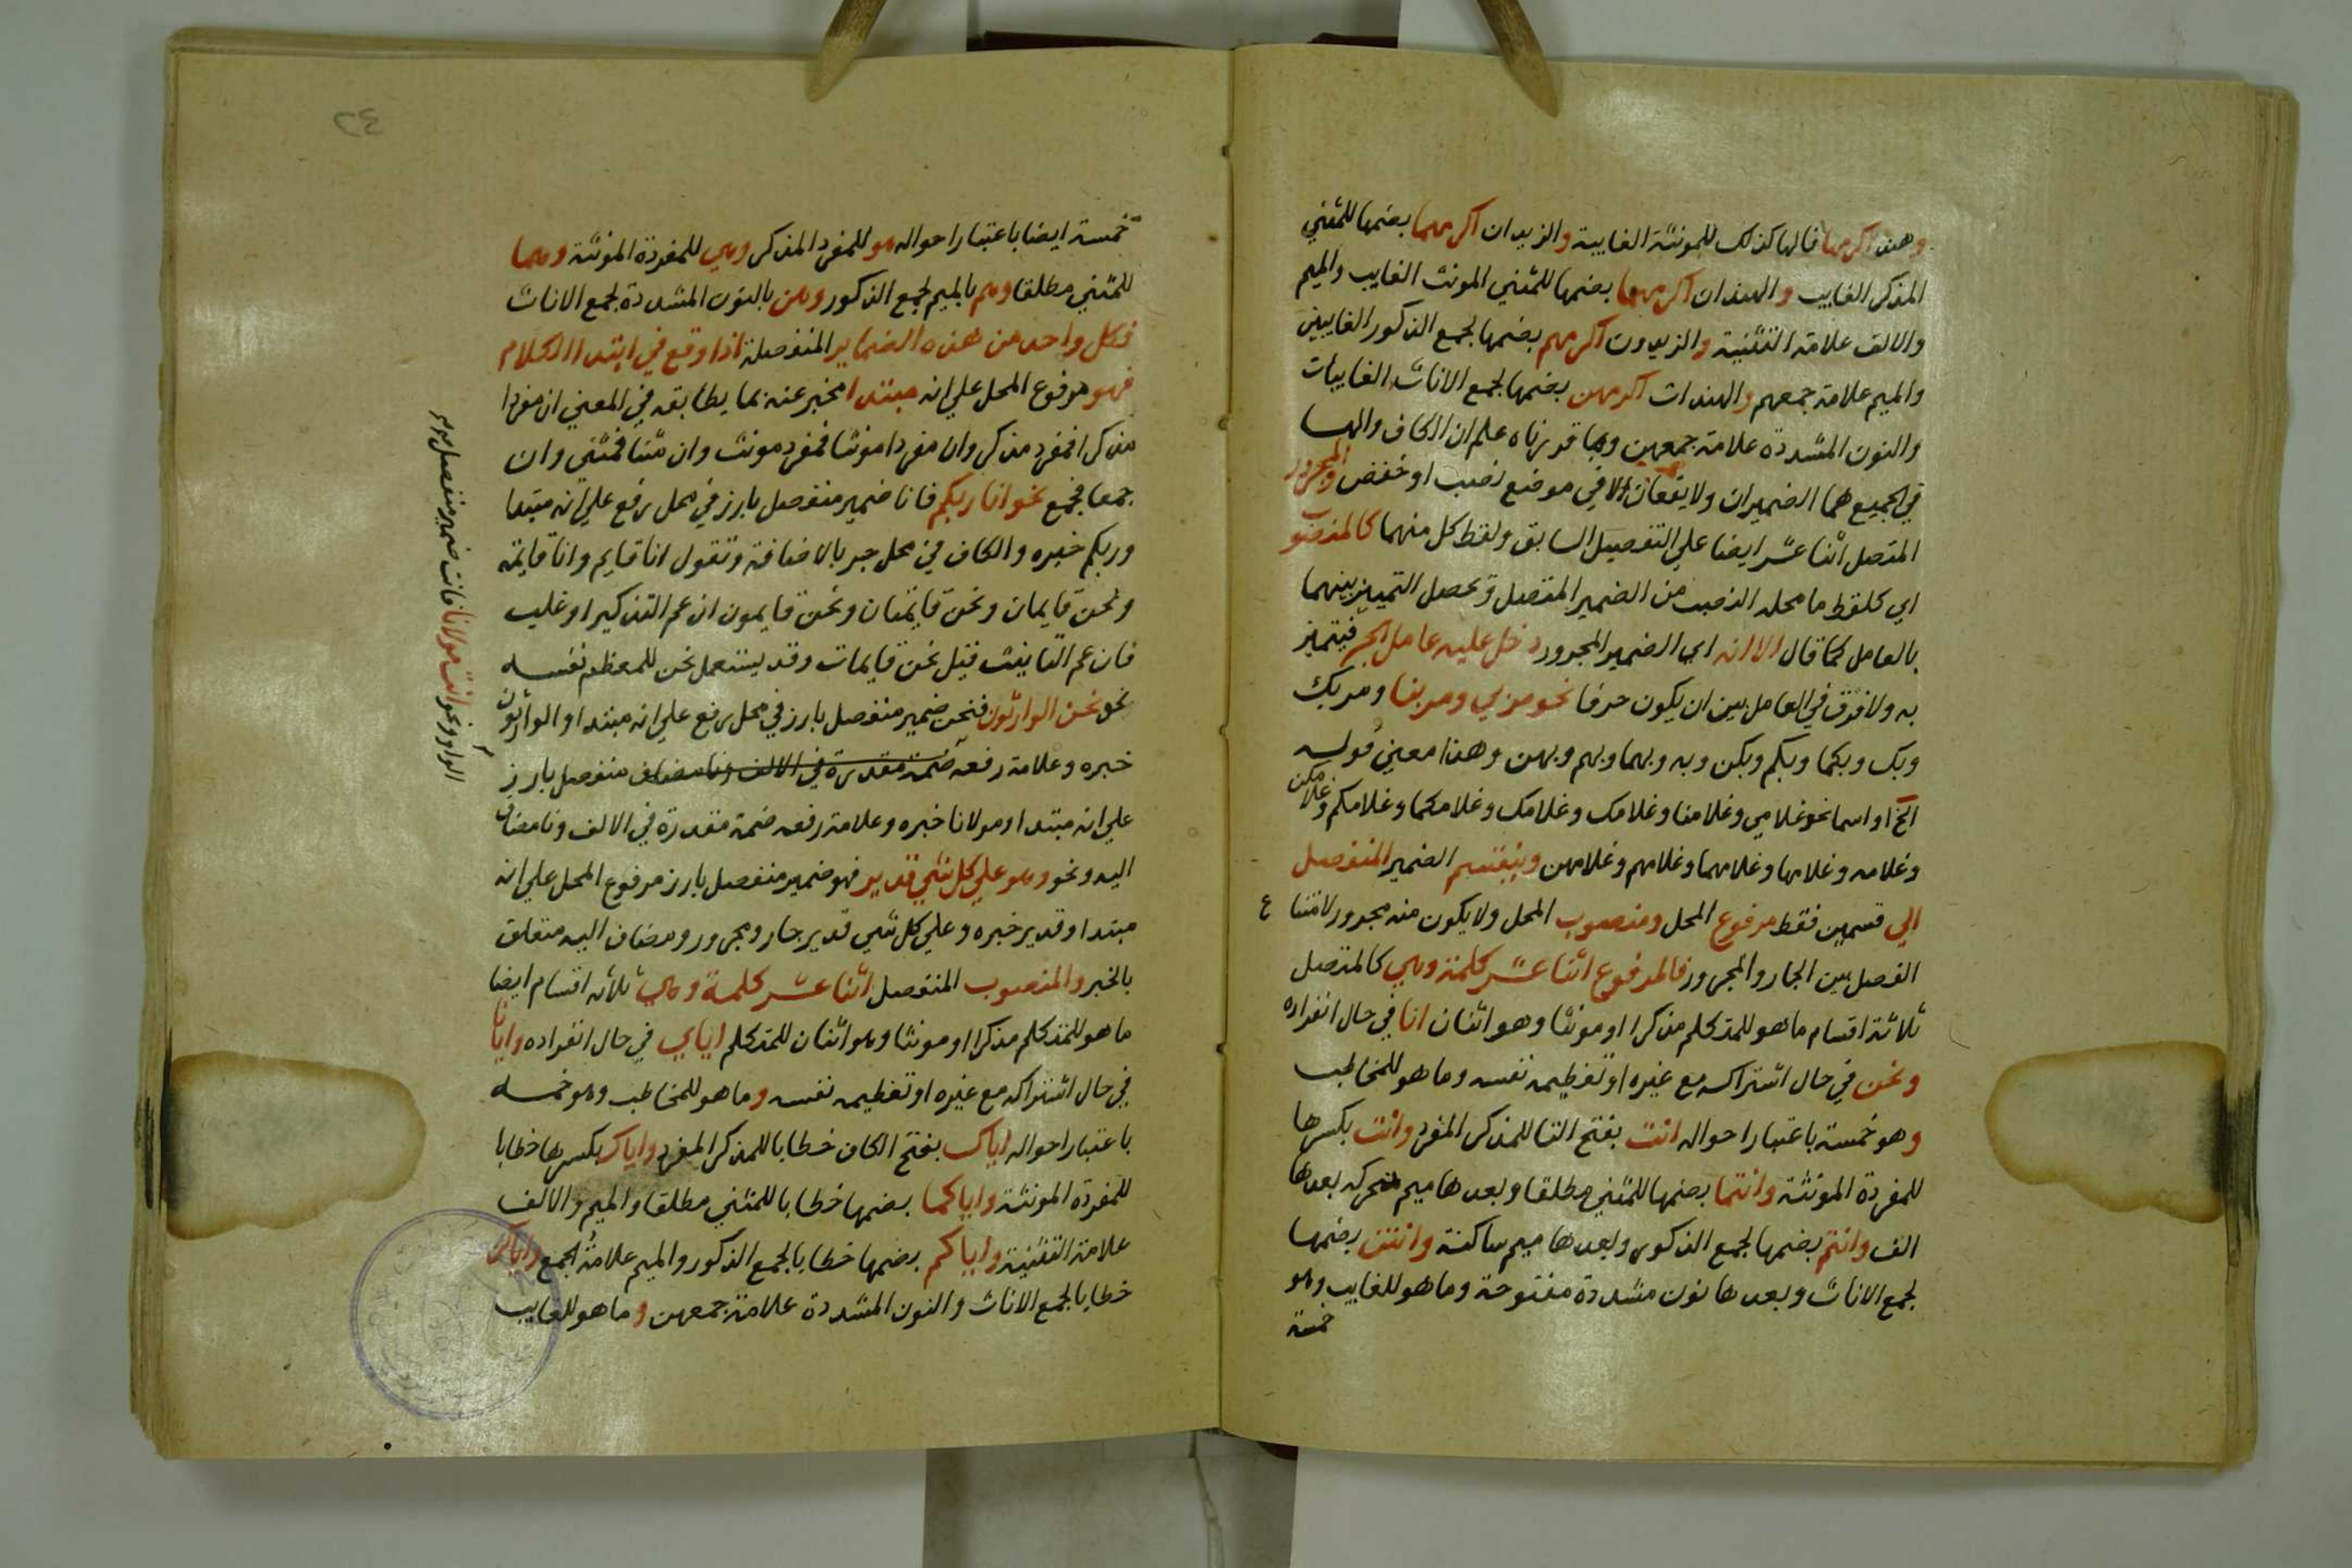 وهند اكرمها فالها كذلك للمونثة الغايبة والزيدان اكرمهما بضمها للمثني
المذكر الغايب والهندان اكرمهما بضمها للمثني المونث الغايب والميم
والالف علامة التثنية والزيدون اكرمهم بضمها لجمع الذكور الغايبين
والميم علامة جمعهم والهندات اكرمهن بضمها لجمع الاناث الغايبات
والنون المشددة علامة جمعهن وبما قدرناه علم ان الكاف والها
في الجميع هما الضميران ولا يقعان الا في موضع نصب او خفض والمجرور
المتصل اثنا عشر ايضا علي التفصيل السابق ولفظ كل منهما كالمنصوب
اي كلفظ ما محله النصب من الضمير المتصل وتحصل التمييز بينهما
بالعامل كما قال الا انه اي الضمير المجرور دخل عليه عامل الجر فيتميز
به ولا فرق في العامل بين ان يكون حرفا نحو مر بي ومر بنا ومر بك
وبك وبكما وبكم وبكن وبه وبهما وبهم وبهن وهذا معني قوله
الخ او اسما نحو غلامي وغلامنا وغلامك وغلامك وغلامكما وغلامكم وغلامكن
وغلامه وغلامها وغلامهما وغلامهم وغلامهن وينقسم الضمير المنفصل
الي قسمين فقط مرفوع المحل ومنصوب المحل ولا يكون منه مجرور لامتناع
الفصل بين الجار والمجرور فالمرفوع اثنا عشر كلمة وهي كالمتصل
ثلاثة اقسام ما هو للمتكلم مذكرا او مونثا وهو اثنان انا في حال انفراده
ونحن في حال اشتراكه مع غيره او تعظيمه نفسه وما هو للمخاطب
وهو خمسة باعتبار احواله انت بفتح التا للمذكر المفرد وانت بكسرها
للمفردة المونثة وانتما بضمها للمثني مطلقا وبعدها ميم متحركه بعدها
الف وانتم بضمها لجمع الذكور وبعدها ميم ساكنة وانتن بضمها
لجمع الاناث وبعدها نون مشددة مفتوحة وما هو للغايب وهو
خمسة
خمسة ايضا باعتبار احواله هو للمفرد المذكر وهي للمفردة المونثة وهما
للمثني مطلقا وهم بالميم لجمع الذكور وهن بالنون المشددة لجمع الاناث
فكل واحد من هذه الضماير المنفصلة اذا وقع في ابتدا الكلام
فهو مرفوع المحل علي انه مبتدا مخبر عنه بما يطابقه في المعني ان مفردا
مذكرا فمفرد مذكر وان مفردا مونثا فمفرد مونث وان مثنا فمثني وان
جمعا فجمع نحو انا ربكم فانا ضمير منفصل بارز في محل رفع علي انه مبتدا
وربكم خبره والكاف في محل جر بالاضافة وتقول انا قايم وانا قايمة
ونحن قايمان ونحن قايمتان ونحن قايمون ان عم التذكير او غلب
فان عم التانيث قيل نحن قايمات وقد يستعمل نحن للمعظم نفسه
نحو نحن الوارثون فنحن ضمير منفصل بارز في محل رفع علي انه مبتدا والوارثون
خبره وعلامة رفعه ضمة مقدرة في الالف ونا مضاف منفصل بارز
علي انه مبتدا ومولانا خبره وعلامة رفعه ضمة مقدرة في الالف ونا مضاف
اليه ونحو وهو علي كل شي قدير فهو ضمير منفصل بارز مرفوع المحل علي انه
مبتدا وقدير خبره وعلي كل شي قدير جار ومجرور ومضاف اليه متعلق
بالخبر والمنصوب المنفصل اثنا عشر كلمة وهي ثلاثه اقسام ايضا
ما هو للمتكلم مذكرا او مونثا وهو اثنان للمتكلم اياي في حال انفراده وايانا
في حال اشتراكه مع غيره او تعظيمه نفسه وما هو للمخاطب وهو خمسه
باعتبار احواله اياك بفتح الكاف خطابا للمذكر المفرد واياك بكسرها خطابا
للمفردة المونثة واياكما بضمها خطابا للمثني مطلقا والميم والالف
علامة التثنية واياكم بضمها خطابا لجمع الذكور والميم علامة الجمع واياكن
خطابا لجمع الاناث والنون المشددة علامة جمعهن وما هو للغايب
الواو ونحو انت مولانا فانت ضمير منفصل
٤٢